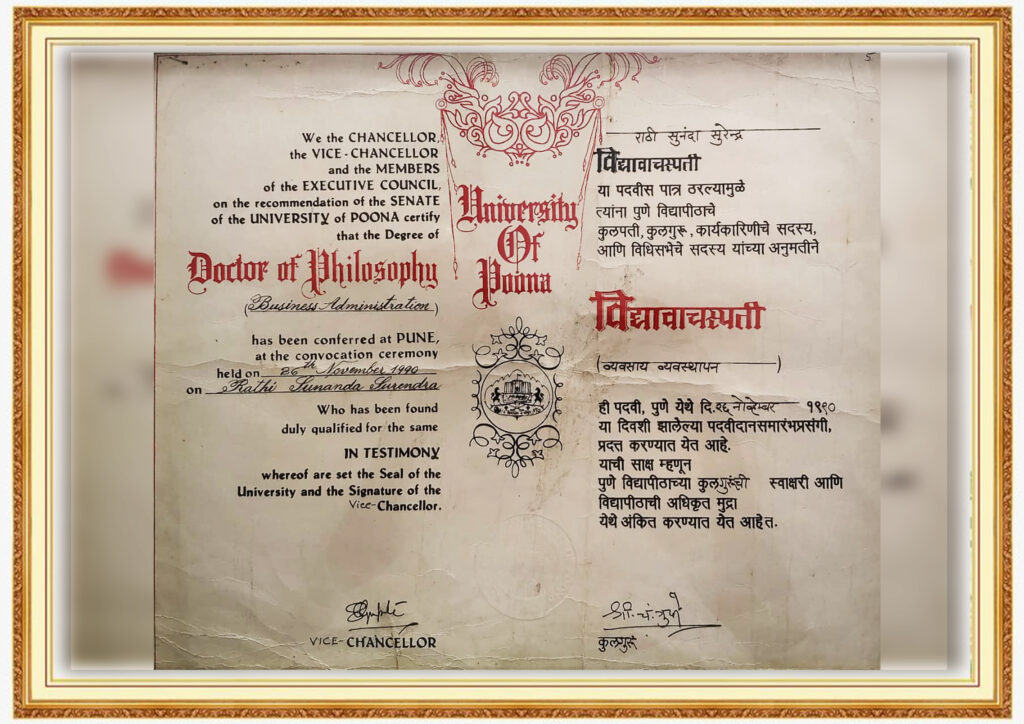 5
We the CHANCELLOR,
the VICE-CHANCELLOR
and the MEMBERS
of the EXECUTIVE COUNCIL,
on the recommendation of the SENATE
of the UNIVERSITY of POONA certify
that the Degree of
Doctor of Philosophy
(Business Administration)
has been conferred at PUNE,
at the convocation ceremony
held on 26th November 1990
on Rathi Sunanda Surendra
Who has been found
duly qualified for the same
IN TESTIMONY
whereof are set the Seal of the
University and the Signature of the
Vice-Chancellor.
VICE-CHANCELLOR
University
Of
Poona
राठी सुनंदा सुरेन्द्र
विद्यावाचस्पती
या पदवीस पात्र ठरल्यामुळे
त्यांना पुणे विद्यापीठाचे
कुलपती, कुलगुरू, कार्यकारिणीचे सदस्य,
आणि विधिसभेचे सदस्य यांच्या अनुमतीने
विद्यावाचस्पती
(व्यवसाय व्यवस्थापन)
ही पदवी, पुणे येथे दि. २६ नोव्हेंबर १९९०
या दिवशी झालेल्या पदवीदानसमारंभप्रसंगी,
प्रदत्त करण्यात येत आहे.
याची साक्ष म्हणून
पुणे विद्यापीठाच्या कुलगुरूंची स्वाक्षरी आणि
विद्यापीठाची अधिकृत मुद्रा
येथे अंकित करण्यात येत आहेत.
श्री. चं. गुप्ते
कुलगुरू